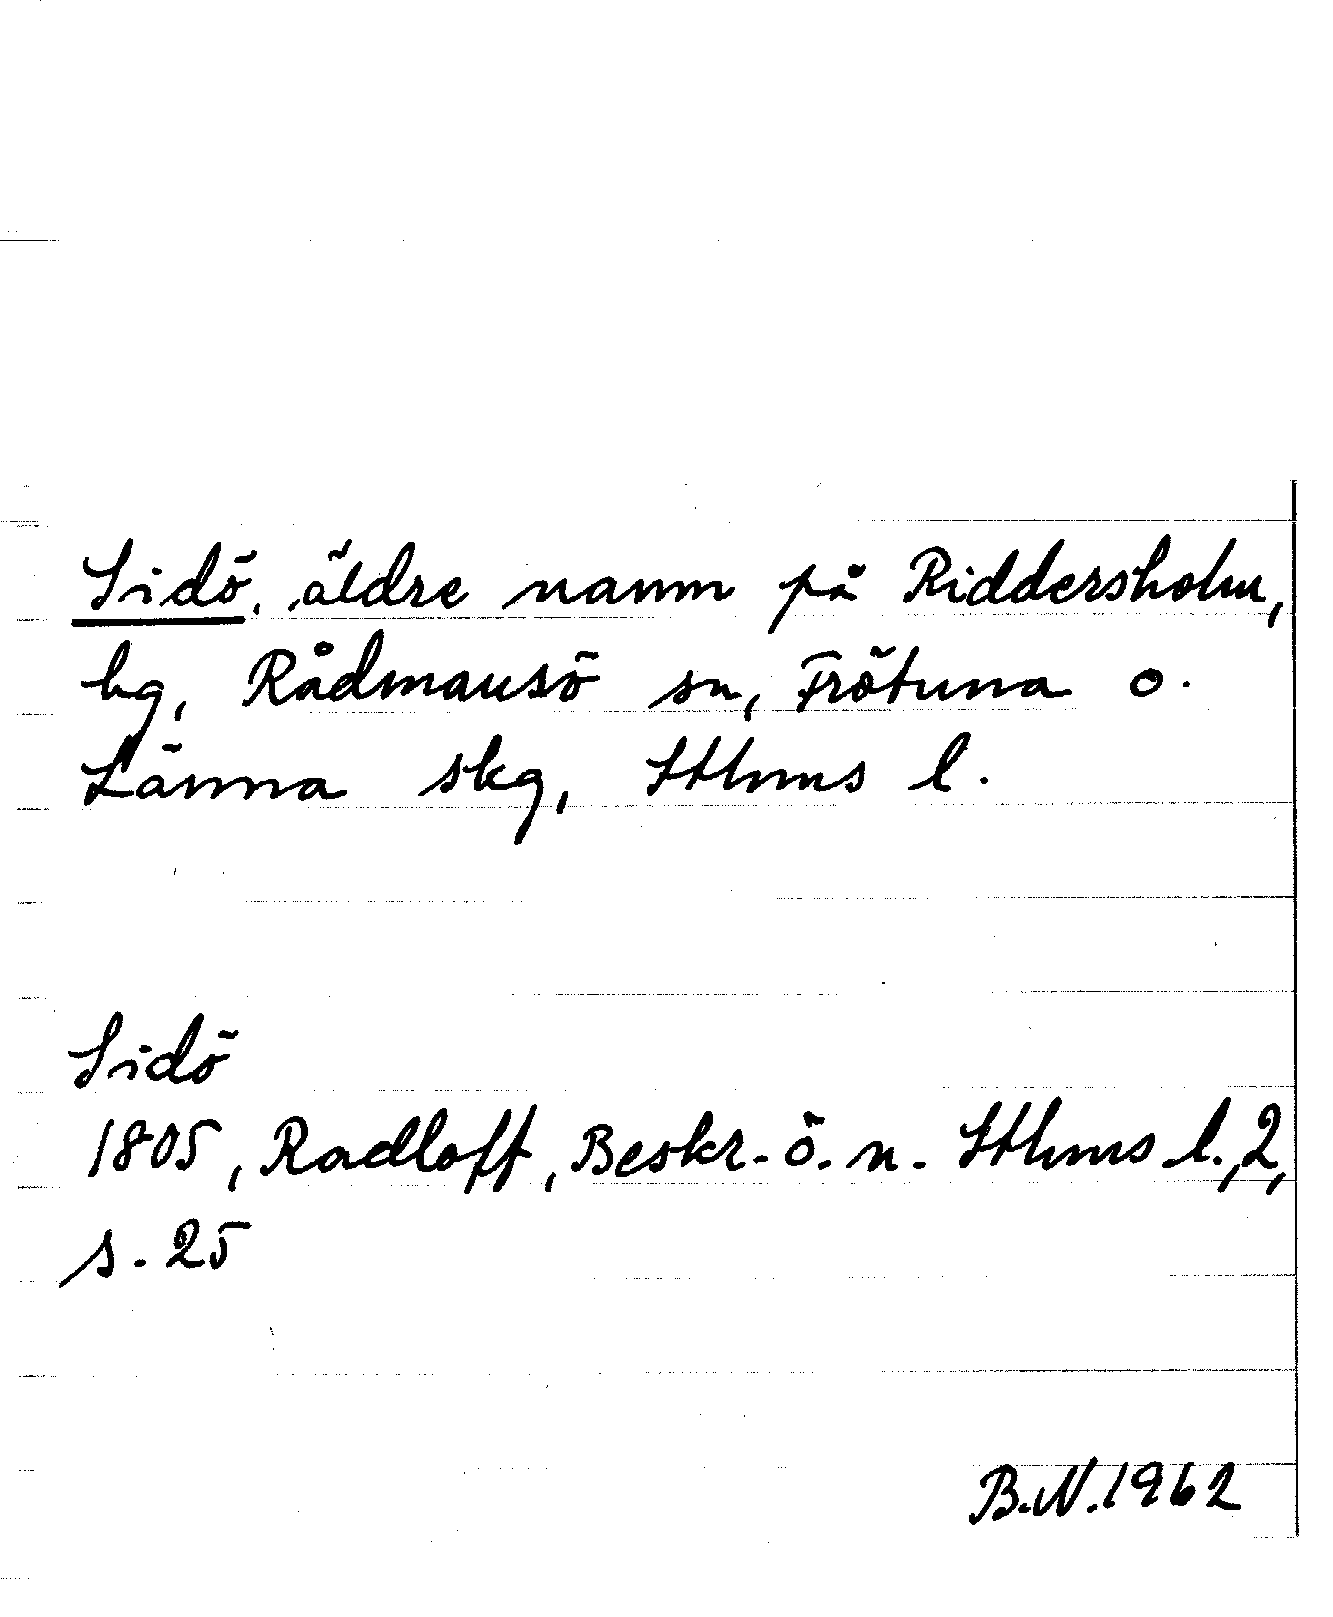 Sidö, äldre namn på Riddersholm,
hg, Rådmansö sn, Frötuna o.
Länna skg, Sthms l.
Sidö
1805, Radloff, Beskr. ö. n. Sthms l., 2,
s. 25
B.N. 1962